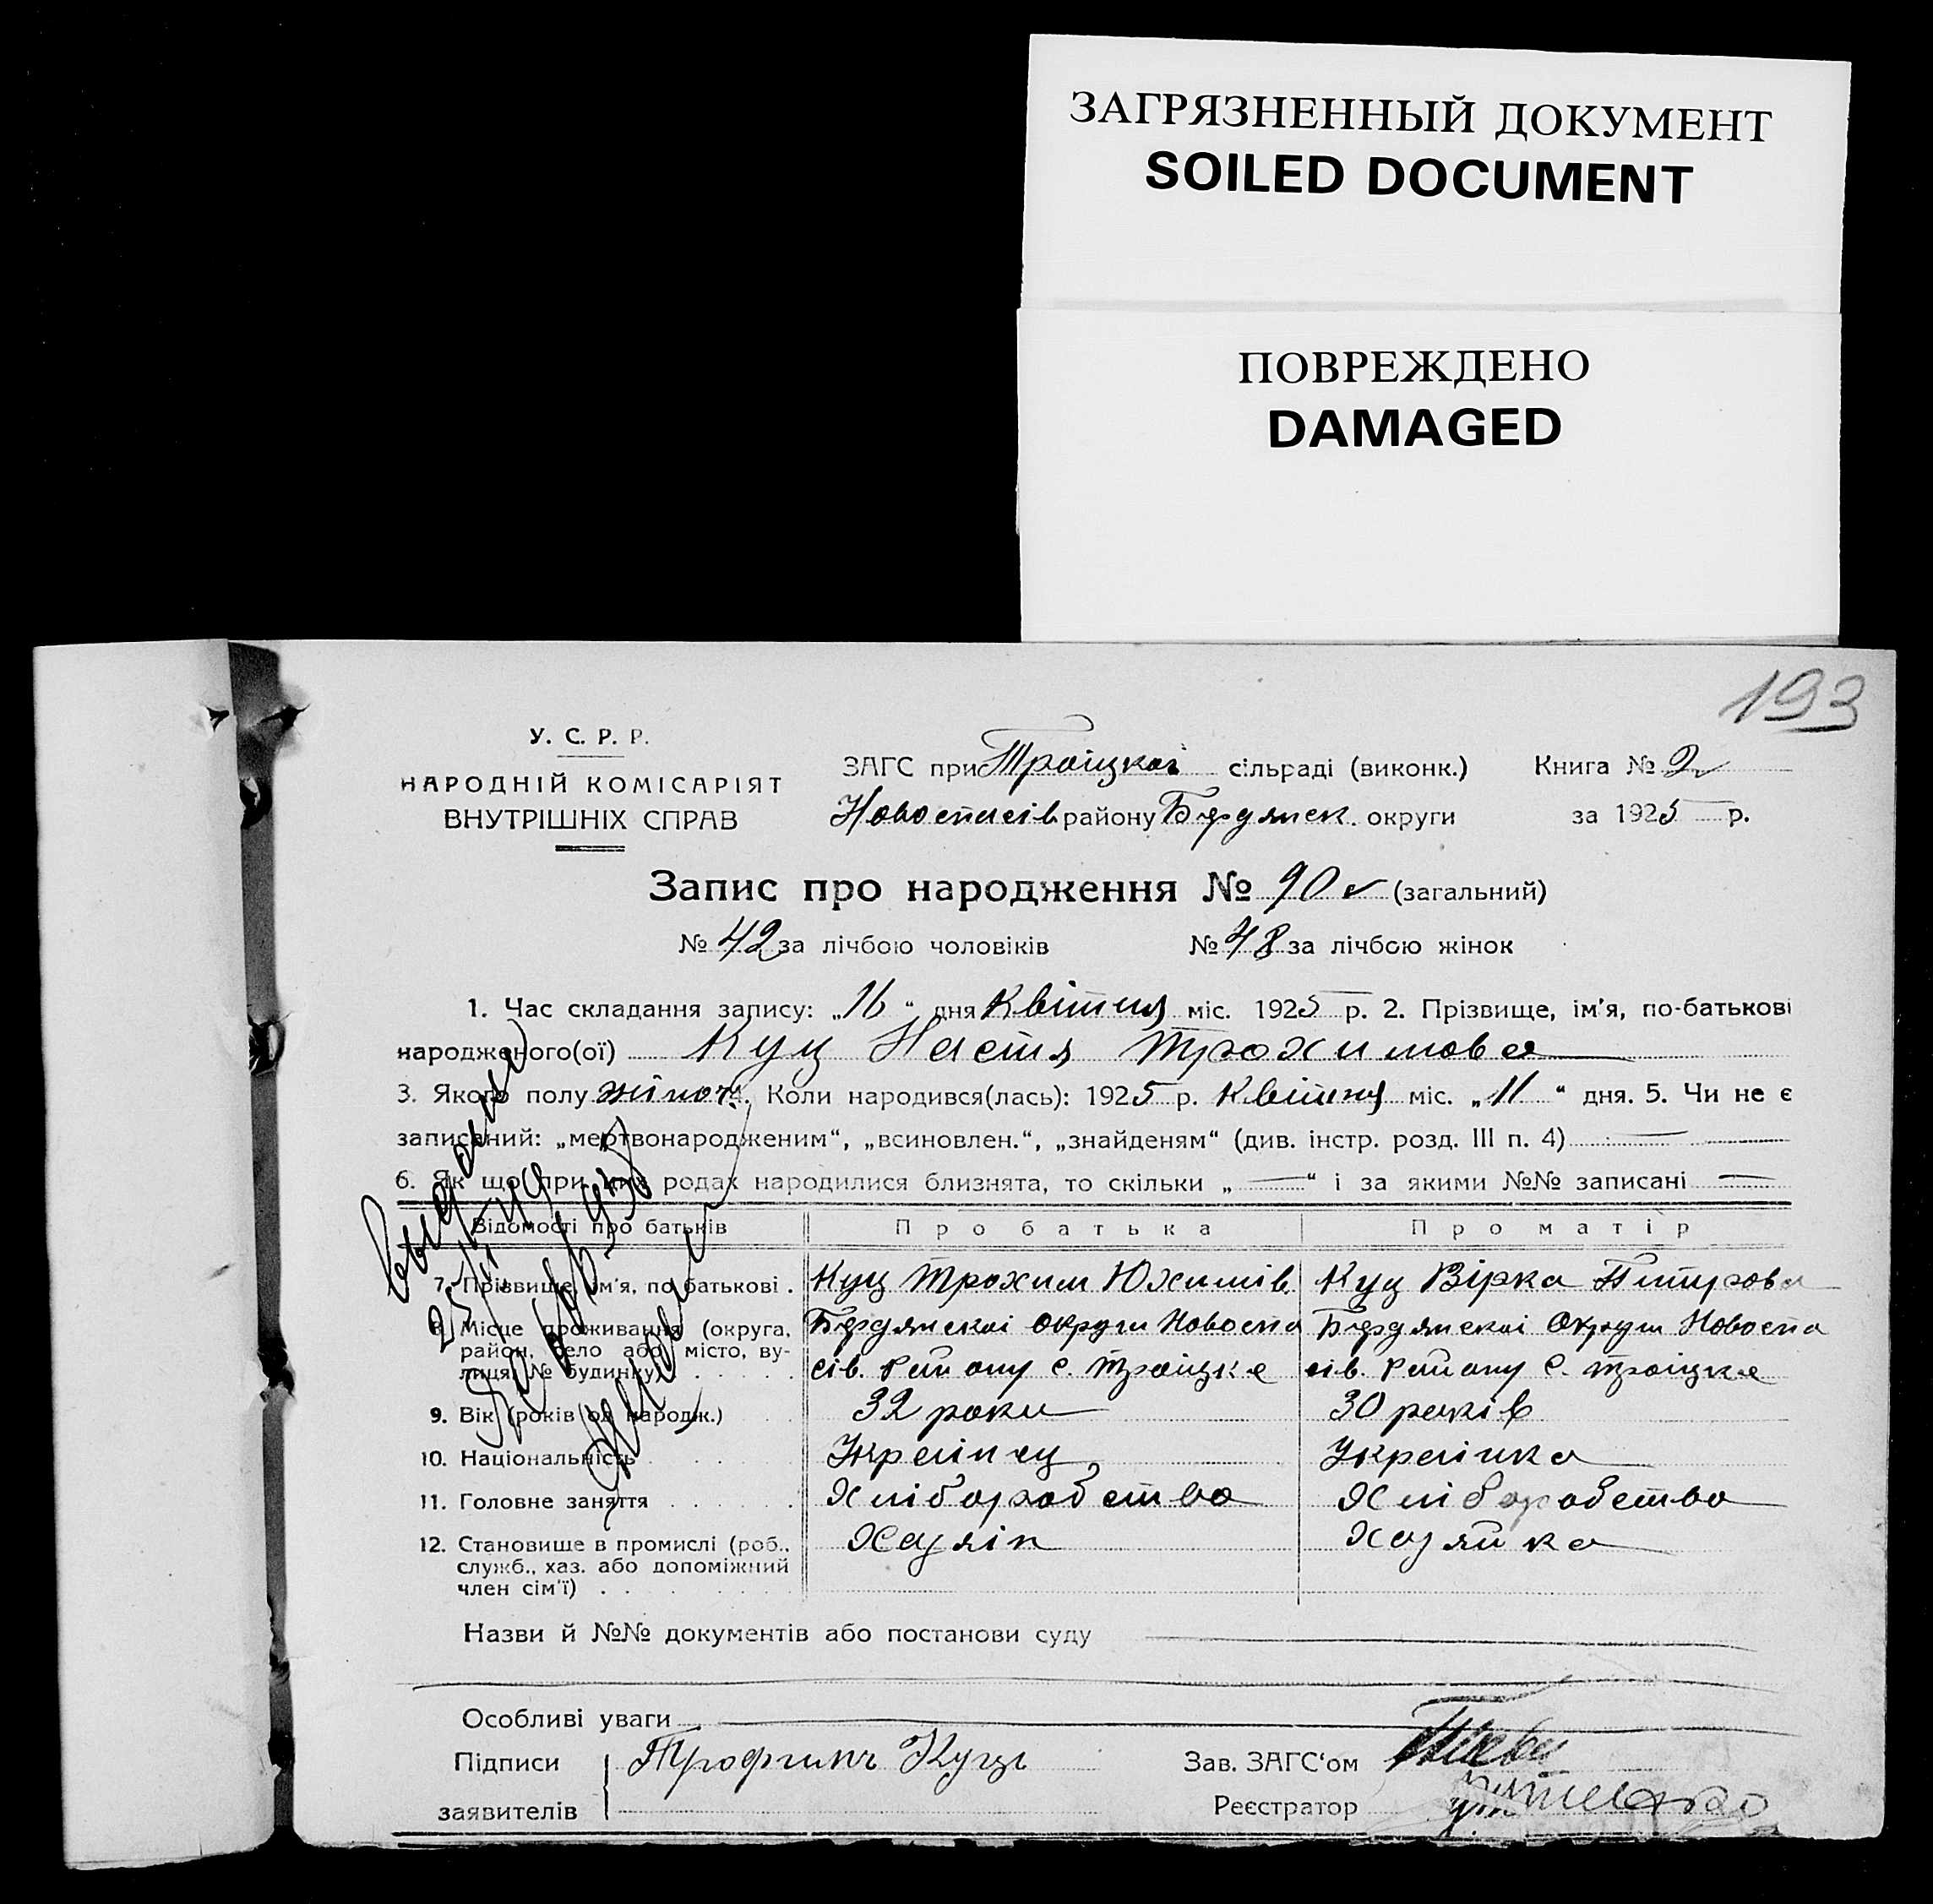 ЗАГРЯЗНЕННЫЙ ДОКУМЕНТ
SOILED DOCUMENT
ПОВРЕЖДЕНО
DAMAGED
193
У. С. Р. Р.
НАРОДНІЙ КОМІСАРІЯТ
ВНУТРІШНІХ СПРАВ
ЗАГС при Троіцкоі сільраді (виконк.) Книга № 2
Новоспасів району Бердянск. округи за 1925 р.
Запис про народження № 90 (загальний)
№ 42 за лічбою чоловіків № 48 за лічбою жінок
1. Час складання запису: „16“ дня Квітня міс. 1925 р. 2. Прізвище, ім'я, по-батькові
народженого(ої) Куц Настя Трохимова
3. Якого полу жіноч. Коли народився(лась): 1925 р. Квітня міс. „11“ дня. 5. Чи не є
записаний: „мертвонародженим“, „всиновлен.“, „знайденям“ (див. інстр. розд. III п. 4)
6. Як що при цих родах народилися близнята, то скільки „ — “ і за якими №№ записані —
Відомості про батьків Про батька Про матір
7. Прізвище, ім'я, по батькові . Куц Трохим Юхимів Куц Вірка Питрова
8. Місце проживання (округа, район, село або місто, вулиця, № будинку) Бердянскоі округи Новоспасів. Району с. Троіцке Бердянскоі Округи Новоспасів. Району С. Троіцке
9. Вік (років од народж.) 32 роки 30 років
10. Національність Украінец Украінка
11. Головне заняття Хліборобство Хліборобство
12. Становище в промислі (роб., служб., хаз. або допоміжний член сім'ї) Хазяін Хазяйка
Назви й №№ документів або постанови суду
Особливі уваги
Підписи заявителів Трофимъ Куцъ
Зав. ЗАГС'ом
Реєстратор